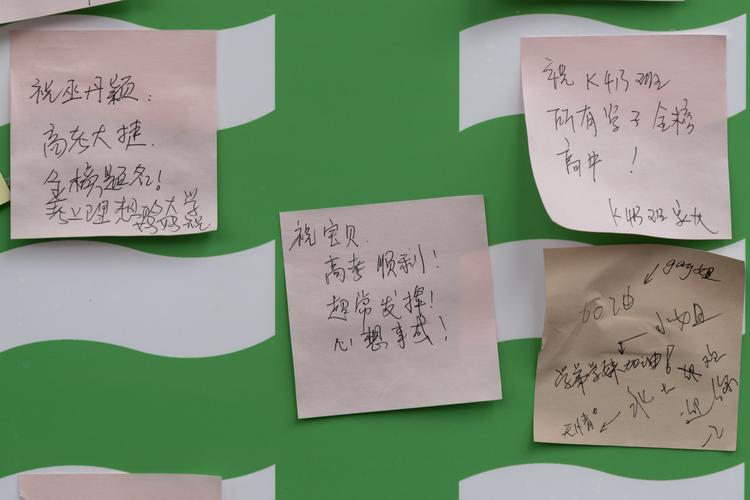 祝巫丹颖:
高考大捷.
金榜题名!
考上理想的大学
妈妈祝
祝宝贝.
高考顺利!
超常发挥!
心想事成!
祝 K413 班
所有学子金榜
高中 !
K413 班家长
gay姐
小姐
学弟学妹加油!